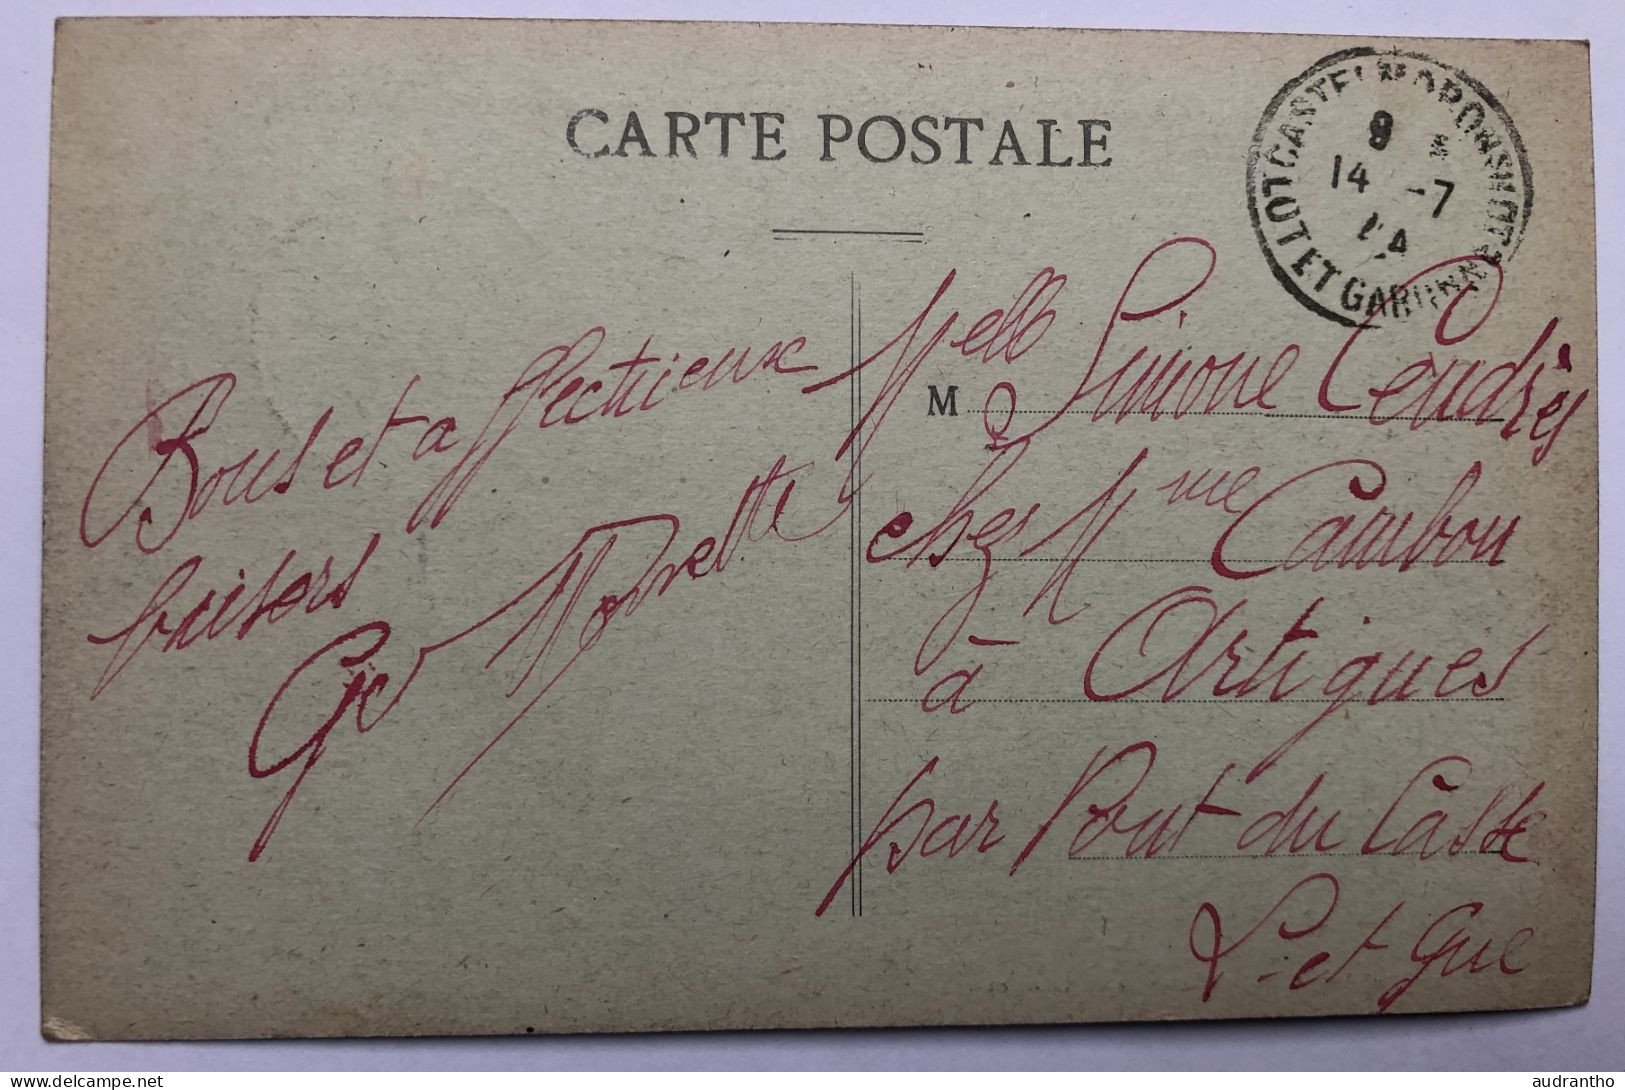 CARTE POSTALE
CASTELMORON S LOT
8
14 -7
24
LOT ET GARONNE
Bons et affectueux
baisers
M
Melle Simone Cendrès
chez Mme Cambon
à Artigues
par Pont du Casse
L. et Gne
delcampe.net
audrantho